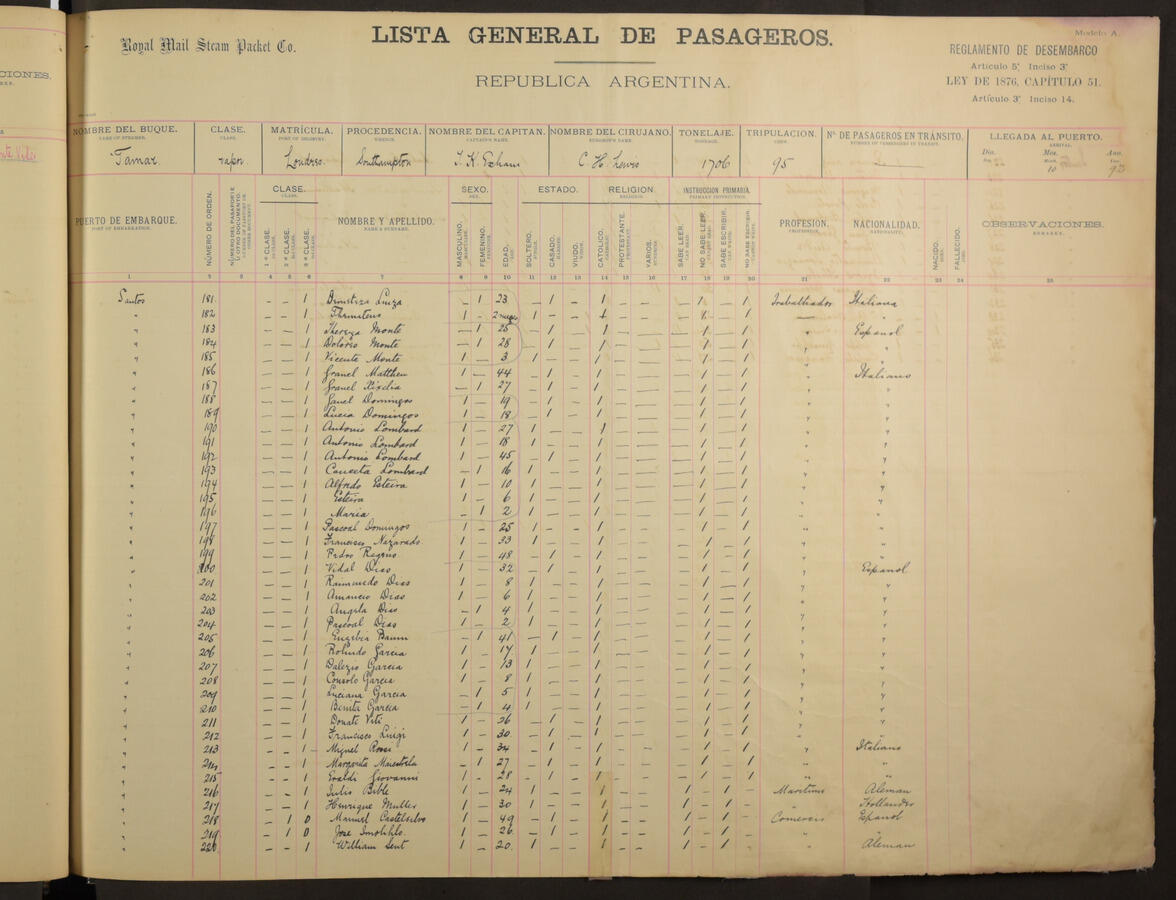 CIONES.
Royal Mail Steam Packet Co.
LISTA GENERAL DE PASAGEROS.
REPUBLICA ARGENTINA.
Modelo A.
REGLAMENTO DE DESEMBARCO
Artículo 5º Inciso 3º
LEY DE 1876, CAPÍTULO 51.
Artículo 3º Inciso 14.
NOMBRE DEL BUQUE. CLASE. MATRÍCULA. PROCEDENCIA. NOMBRE DEL CAPITAN. NOMBRE DEL CIRUJANO. TONELAJE. TRIPULACION. Nº DE PASAGEROS EN TRÁNSITO. LLEGADA AL PUERTO.
NAME OF STEAMER. CLASS. PORT OF REGISTRY. WHENCE. CAPTAIN'S NAME. SURGEON'S NAME. TONNAGE. CREW. NUMBER OF PASSENGERS IN TRANSIT. ARRIVAL.
Dia. Mes. Ano.
Tamar vapor Londres Southampton C H Lewis 1706 95 10 93
PUERTO DE EMBARQUE. NÚMERO DE ORDEN. CLASE. NOMBRE Y APELLIDO. SEXO. EDAD. ESTADO. RELIGION. INSTRUCCION PRIMARIA. PROFESION. NACIONALIDAD. NACIDO. FALLECIDO. OBSERVACIONES.
PORT OF EMBARKATION. CLASS. NAME & SURNAME. SEX. RELIGION. PRIMARY INSTRUCTION. PROFESSION. NATIONALITY. REMARKS.
1ª CLASE. 2ª CLASE. 3ª CLASE. MASCULINO. FEMENINO. SOLTERO. CASADO. VIUDO. CATOLICO. PROTESTANTE. VARIOS. SABE LEER. NO SABE LEER. SABE ESCRIBIR. NO SABE ESCRIBIR.
1 2 3 4 5 6 7 8 9 10 11 12 13 14 15 16 17 18 19 20 21 22 23 24 25
Santos 181 – – 1 Luiza – 1 23 – 1 – 1 – – – 1 – 1 Trabalhador Italiana
" 182 – – 1 1 – 2 meses 1 – – 1 – – – 1 – 1 —
" 183 – – 1 Thereza Monte – 1 25 – 1 – 1 – – – 1 – 1 " Espanol
" 184 – – 1 Doloris Monte – 1 28 – 1 – 1 – – – 1 – 1 " "
" 185 – – 1 Vicente Monte 1 – 3 1 – – 1 – – – 1 – 1 " "
" 186 – – 1 Granel Matthew 1 – 44 – 1 – 1 – – – 1 – 1 " Italiano
" 187 – – 1 Granel – 1 27 – 1 – 1 – – – 1 – 1 " "
" 188 – – 1 Domingos 1 – 19 – 1 – 1 – – – 1 – 1 " "
" 189 – – 1 Lucia Domingos – 1 18 – 1 – 1 – – – 1 – 1 " "
" 190 – – 1 Antonio Lombard 1 – 27 1 – – 1 – – – 1 – 1 " "
" 191 – – 1 Antonio Lombard 1 – 18 1 – – 1 – – – 1 – 1 " "
" 192 – – 1 Antonio Lombard 1 – 45 – 1 – 1 – – – 1 – 1 " "
" 193 – – 1 Conceta Lombard – 1 16 1 – – 1 – – – 1 – 1 " "
" 194 – – 1 Alfredo Esteira 1 – 10 1 – – 1 – – – 1 – 1 " "
" 195 – – 1 Esteira 1 – 6 1 – – 1 – – – 1 – 1 " "
" 196 – – 1 Maria – 1 2 1 – – 1 – – – 1 – 1 " "
" 197 – – 1 Pascoal Domingos 1 – 25 1 – – 1 – – – 1 – 1 " "
" 198 – – 1 Francisco Nazarado 1 – 33 1 – – 1 – – – 1 – 1 " "
" 199 – – 1 Pedro 1 – 48 – 1 – 1 – – – 1 – 1 " "
" 200 – – 1 Vidal Dias 1 – 32 – 1 – 1 – – – 1 – 1 " Espanol
" 201 – – 1 Raimundo Dias 1 – 8 1 – – 1 – – – 1 – 1 " "
" 202 – – 1 Amancio Dias 1 – 6 1 – – 1 – – – 1 – 1 " "
" 203 – – 1 Angela Dias – 1 4 1 – – 1 – – – 1 – 1 " "
" 204 – – 1 Pascoal Dias 1 – 2 1 – – 1 – – – 1 – 1 " "
" 205 – – 1 – 1 41 – 1 – 1 – – – 1 – 1 " "
" 206 – – 1 Rolindo Garcia 1 – 17 1 – – 1 – – – 1 – 1 " "
" 207 – – 1 Garcia 1 – 13 1 – – 1 – – – 1 – 1 " "
" 208 – – 1 Consolo Garcia 1 – 8 1 – – 1 – – – 1 – 1 " "
" 209 – – 1 Luciana Garcia – 1 5 1 – – 1 – – – 1 – 1 " "
" 210 – – 1 Benita Garcia – 1 4 1 – – 1 – – – 1 – 1 " "
" 211 – – 1 Donato Viti 1 – 26 – 1 – 1 – – – 1 – 1 " "
" 212 – – 1 Francisco Luigi 1 – 30 – 1 – 1 – – – 1 – 1 " "
" 213 – – 1 Miguel Rossi 1 – 34 – 1 – 1 – – – 1 – 1 " Italiano
" 214 – – 1 Margarita – 1 27 – 1 – 1 – – – 1 – 1 " "
" 215 – – 1 Giovanni 1 – 28 – 1 – 1 – – – 1 – 1 " "
" 216 – – 1 Julio Bible 1 – 24 1 – – 1 – – 1 – 1 – Maritimo Aleman
" 217 – – 1 Henrique Muller 1 – 30 1 – – 1 – – 1 – 1 – " Hollandes
" 218 – 1 0 Manuel 1 – 49 1 – – 1 – – 1 – 1 – Comercio Espanol
" 219 – 1 0 Jose 1 – 26 1 – – 1 – – 1 – 1 – " "
" 220 – – 1 William Sent 1 – 20 1 – – 1 – – 1 – 1 – " Aleman